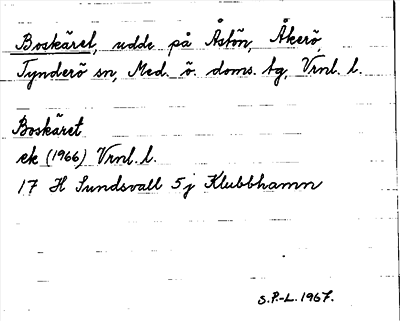 Boskäret, udde på Åstön, Åkerö,
Tynderö sn, Med. ö. doms. tg, Vrnl. l.
Boskäret
ek (1966) Vrnl. l.
17 H Sundsvall 5j Klubbhamn
S.P.-L. 1967.